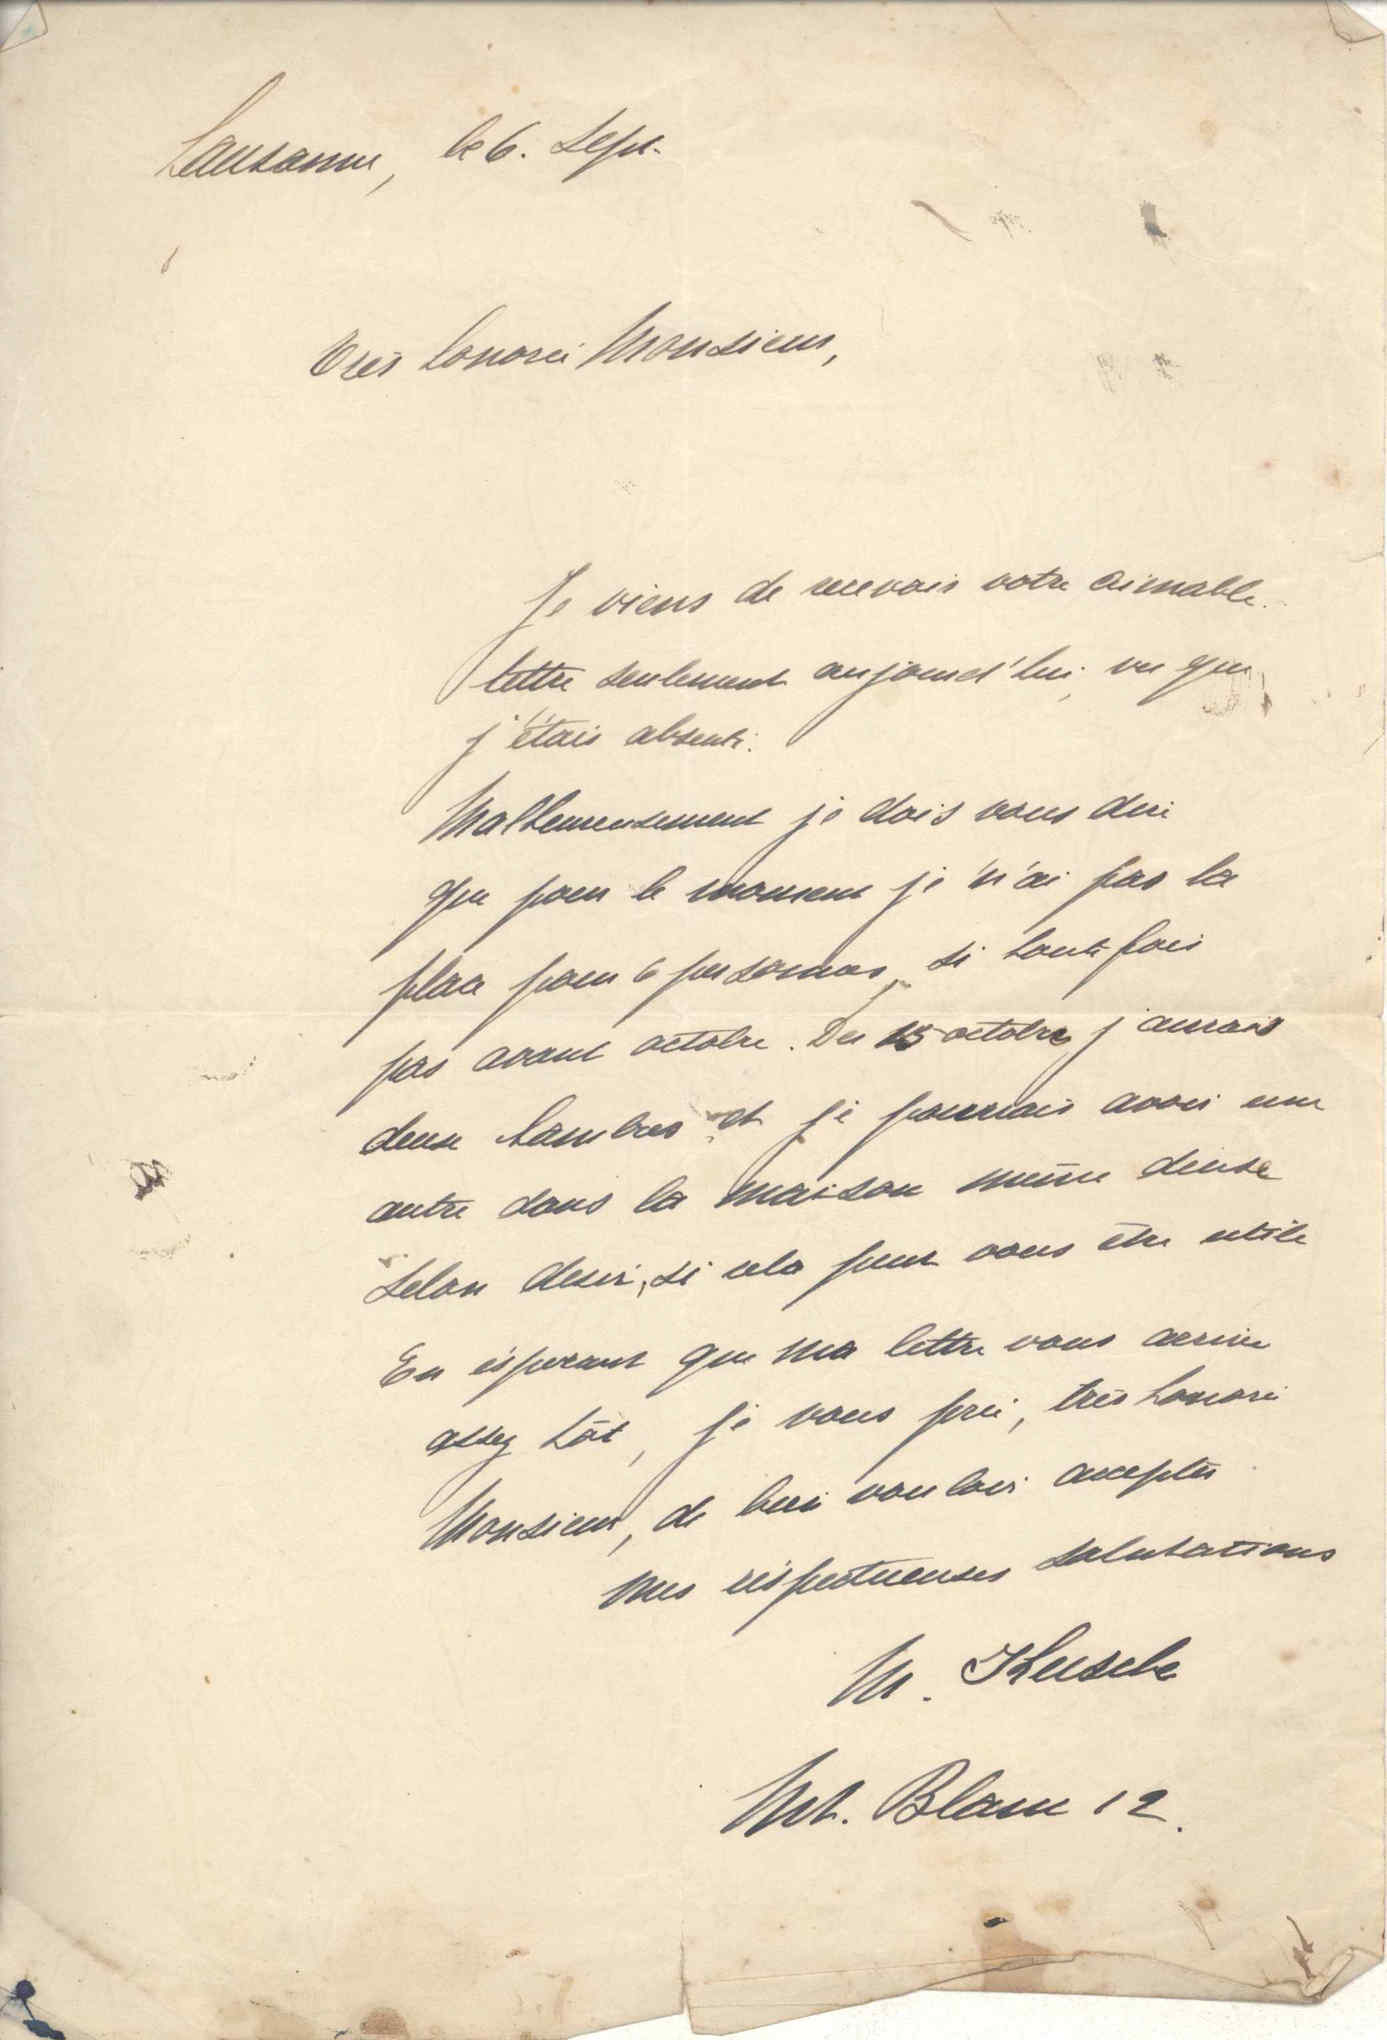 Lausanne, le 6. Sept.
Très honoré Monsieur,
Je viens de recevoir votre aimable
lettre seulement aujourd'hui, vu que
j'étais absente.
Malheureusement je dois vous dire
que pour le moment je n'ai pas la
place pour 6 personnes, si toute fois
pas avant octobre. Des 15 octobre j'aurais
deux chambres et je pourrais avoir une
autre dans la maison même
selon desir, si cela peut vous être utile
En ésperant que ma lettre vous arrive
assez tôt, je vous prie, très honoré
Monsieur, de bien vouloir accepter
mes réspectueuses salutations
M.
Mt. Blanc 12.